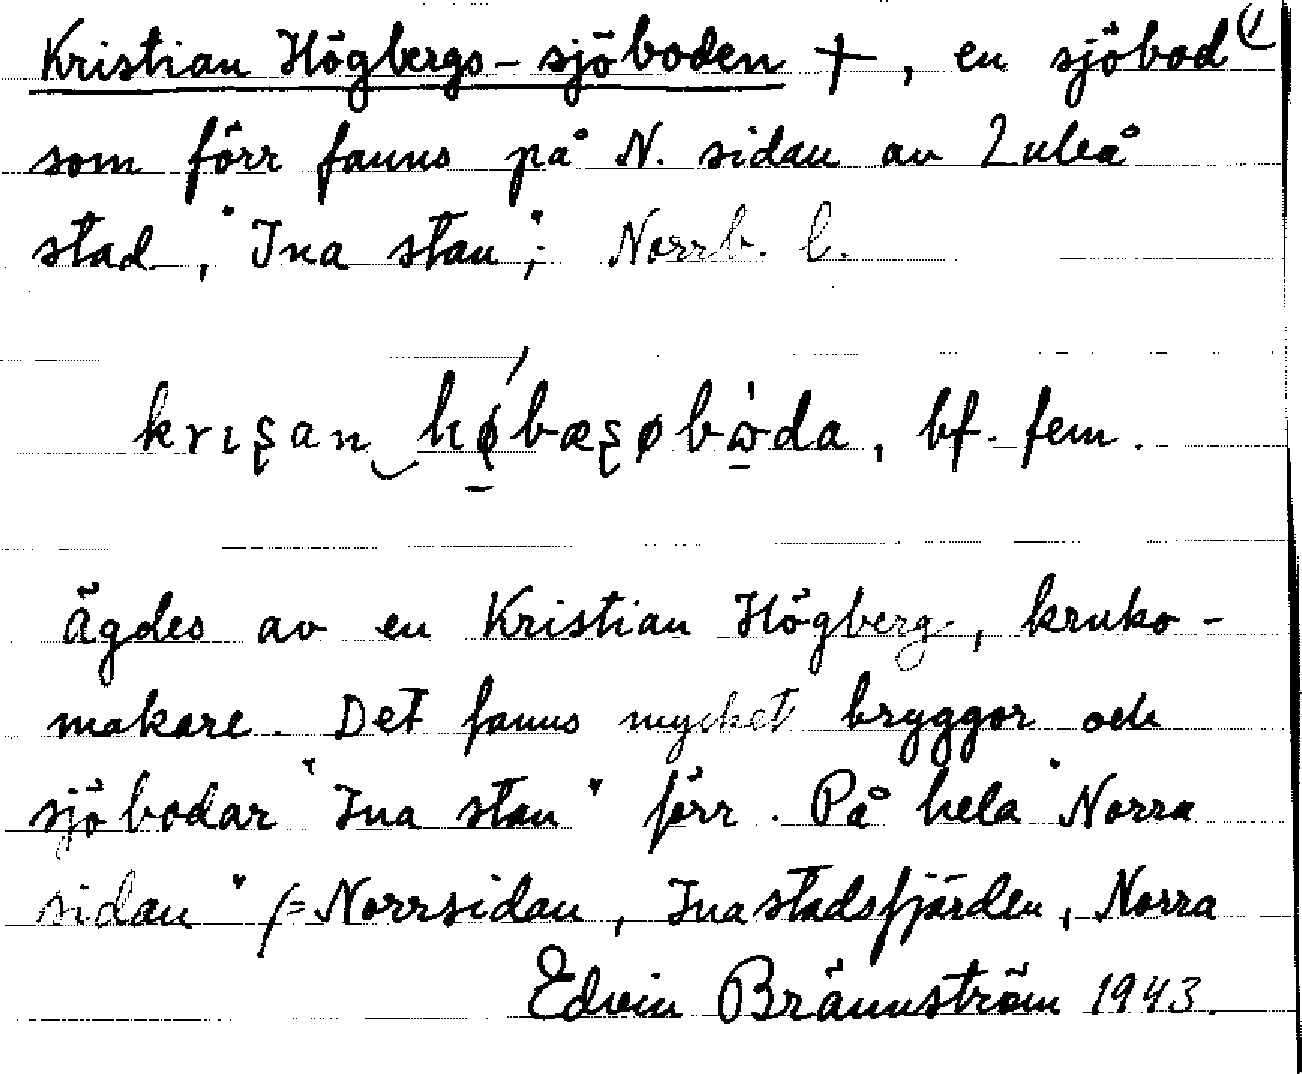 Kristian Högbergs-sjöboden +, en sjöbod (1
som förr fanns på N. sidan av Luleå
stad, "Ina stan"; Norrb. l.
krıʂan‿hǿ̱bæʂøbὼ̱da, bf. fem.
Ägdes av en Kristian Högberg, kruko-
makare. Det fanns mycket bryggor och
sjöbodar "Ina stan" förr. På hela "Norra
sidan" (=Norrsidan, Inastadsfjärden, Norra
Edvin Brännström 1943.